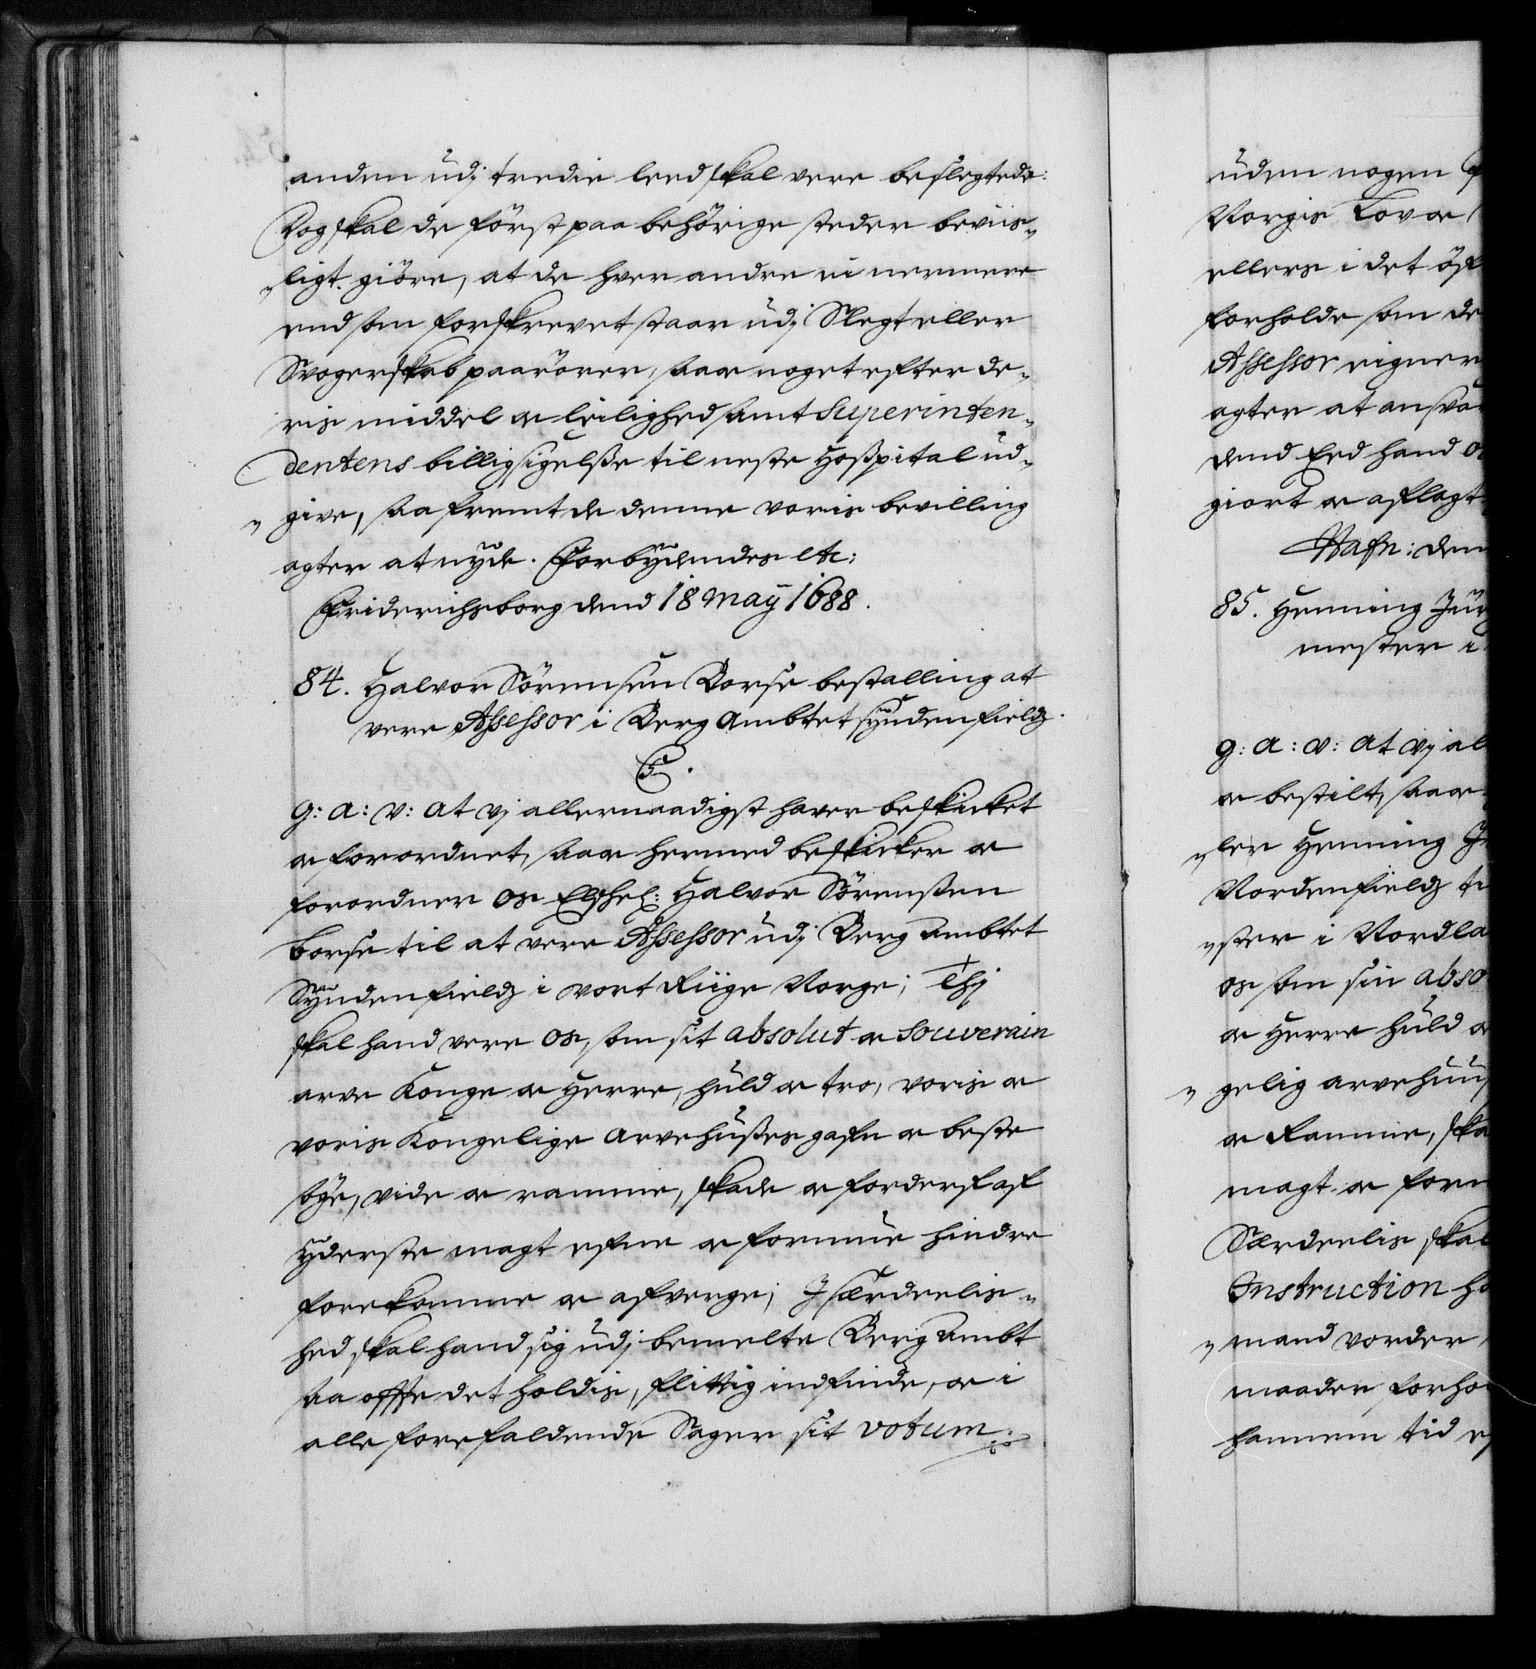 anden udj tredie leed skal vere beslegtede:
Dog skal de först paa behörige steder beviis-
ligt giöre, at de hver andre ei nermere
end som forskrevet staar udj Slegt eller
Svogerskab paarörer, saa og noget efter de-
ris middel og leilighed samt Superinten-
dentens billigsigelsse til neste Hosspital ud-
give, saa fremt de denne voris bevilling
agter at nyde. Forbydendes etc:
Friderichsborg dend 18 May 1688.
84. Halvor Sörensen Borse bestalling at
vere Assessor i Berg Ambtet syndenfields.
C5.
G: A: V: at vj allernaadigst haver beskicket
og forordnet, saa og hermed beskicker og
forordner os Elskel: Halvor Sörenssen
Borse til at vere Assessor udj Berg Ambtet
Syndenfields i vort Riige Norge; Thj
skal hand vere os, som sit absolut og Souverain
arve Konge og Herre, huld og tro, voris og
voris Kongelige Arvehusses gafn og beste
söge, vide og ramme, skade og forderf af
yderste magt efne og formue hindre
forekomme og afverge; J særdeelis-
hed skal hand sig udj bemelte Berg Ambt
saa offte det holdis, flittig indfinde, og i
alle forefaldende Sager sit votum
uden nogen
Norgis Lov og
ellers i det öf
forholde som de
Assessor eigner
agter at ansva
dend Eed hand os
giort og aflagt
Hafn: den
85. Henning Jür
mester i
G: A: V: at vj al
og bestilt, saa og
ler Henning J
Nordenfields ti
ster i Nordla
os som sin abso
og Herre huld og
gelig arvehuus
og Ramme, ska
magt og form
Særdeelis skal
Instruction ho
mand vorder
maader forho
hannem tid ef